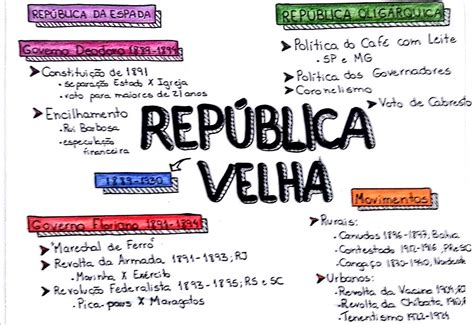 REPÚBLICA DA ESPADA
Governo Deodoro 1889-1891
Constituição de 1891
- separação Estado X Igreja
- voto para maiores de 21 anos
Encilhamento
- Rui Barbosa
- especulação
financeira
REPÚBLICA OLIGÁRQUICA
Política do Café com Leite
- SP e MG
Política dos Governadores
Coronelismo
Voto de Cabresto
REPÚBLICA
VELHA
1889-1930
Governo Floriano 1891-1894
"Marechal de Ferro"
Revolta da Armada 1891-1893; RJ
- Marinha X Exército
Revolução Federalista 1893-1895; RS e SC
- Pica-paus X Maragatos
Movimentos
Rurais:
- Canudos 1896-1897, Bahia
- Contestado 1912-1916, PR e SC
- Cangaço Nordeste
Urbanos:
- Revolta da Vacina 1904; RJ
- Revolta da Chibata 1910; RJ
- Tenentismo 1922-